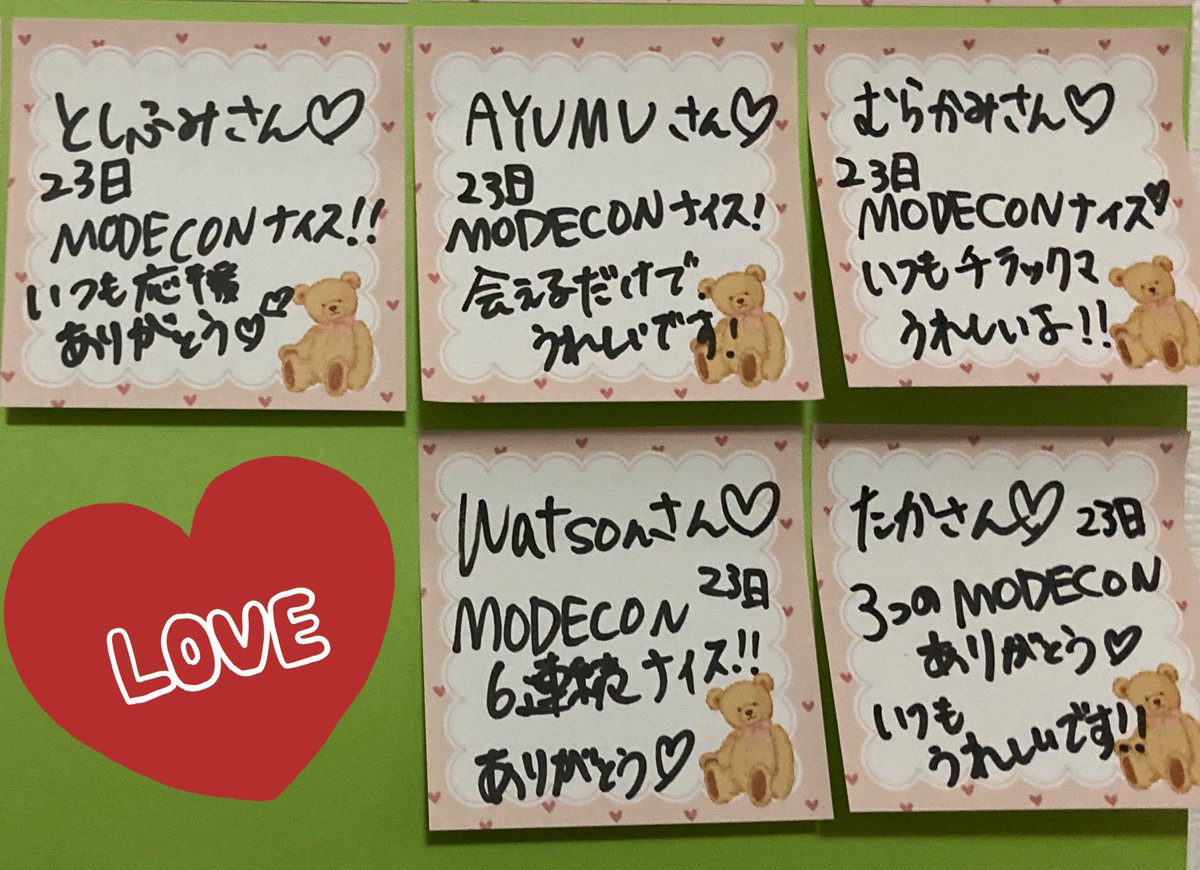 としふみさん♡
23日
MODECONナイス!!
いつも応援
ありがとう♡♡
AYUMUさん♡
23日
MODECONナイス!
会えるだけで
うれしいです!
むらかみさん♡
23日
MODECONナイス♥
いつもチラックマ
うれしいよ!!
LOVE
Watsonさん♡
23日
MODECON
6連続ナイス!!
ありがとう♡
たかさん♡ 23日
3つのMODECON
ありがとう♡
いつも
うれしいです!!